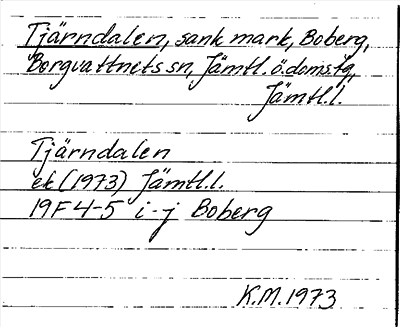 Tjärndalen, sank mark, Boberg,
Borgvattnets sn, Jämtl.ö.doms.tg,
Jämtl.l.
Tjärndalen
ek (1973) Jämtl.l.
19F 4-5 i-j Boberg
K.M.1973